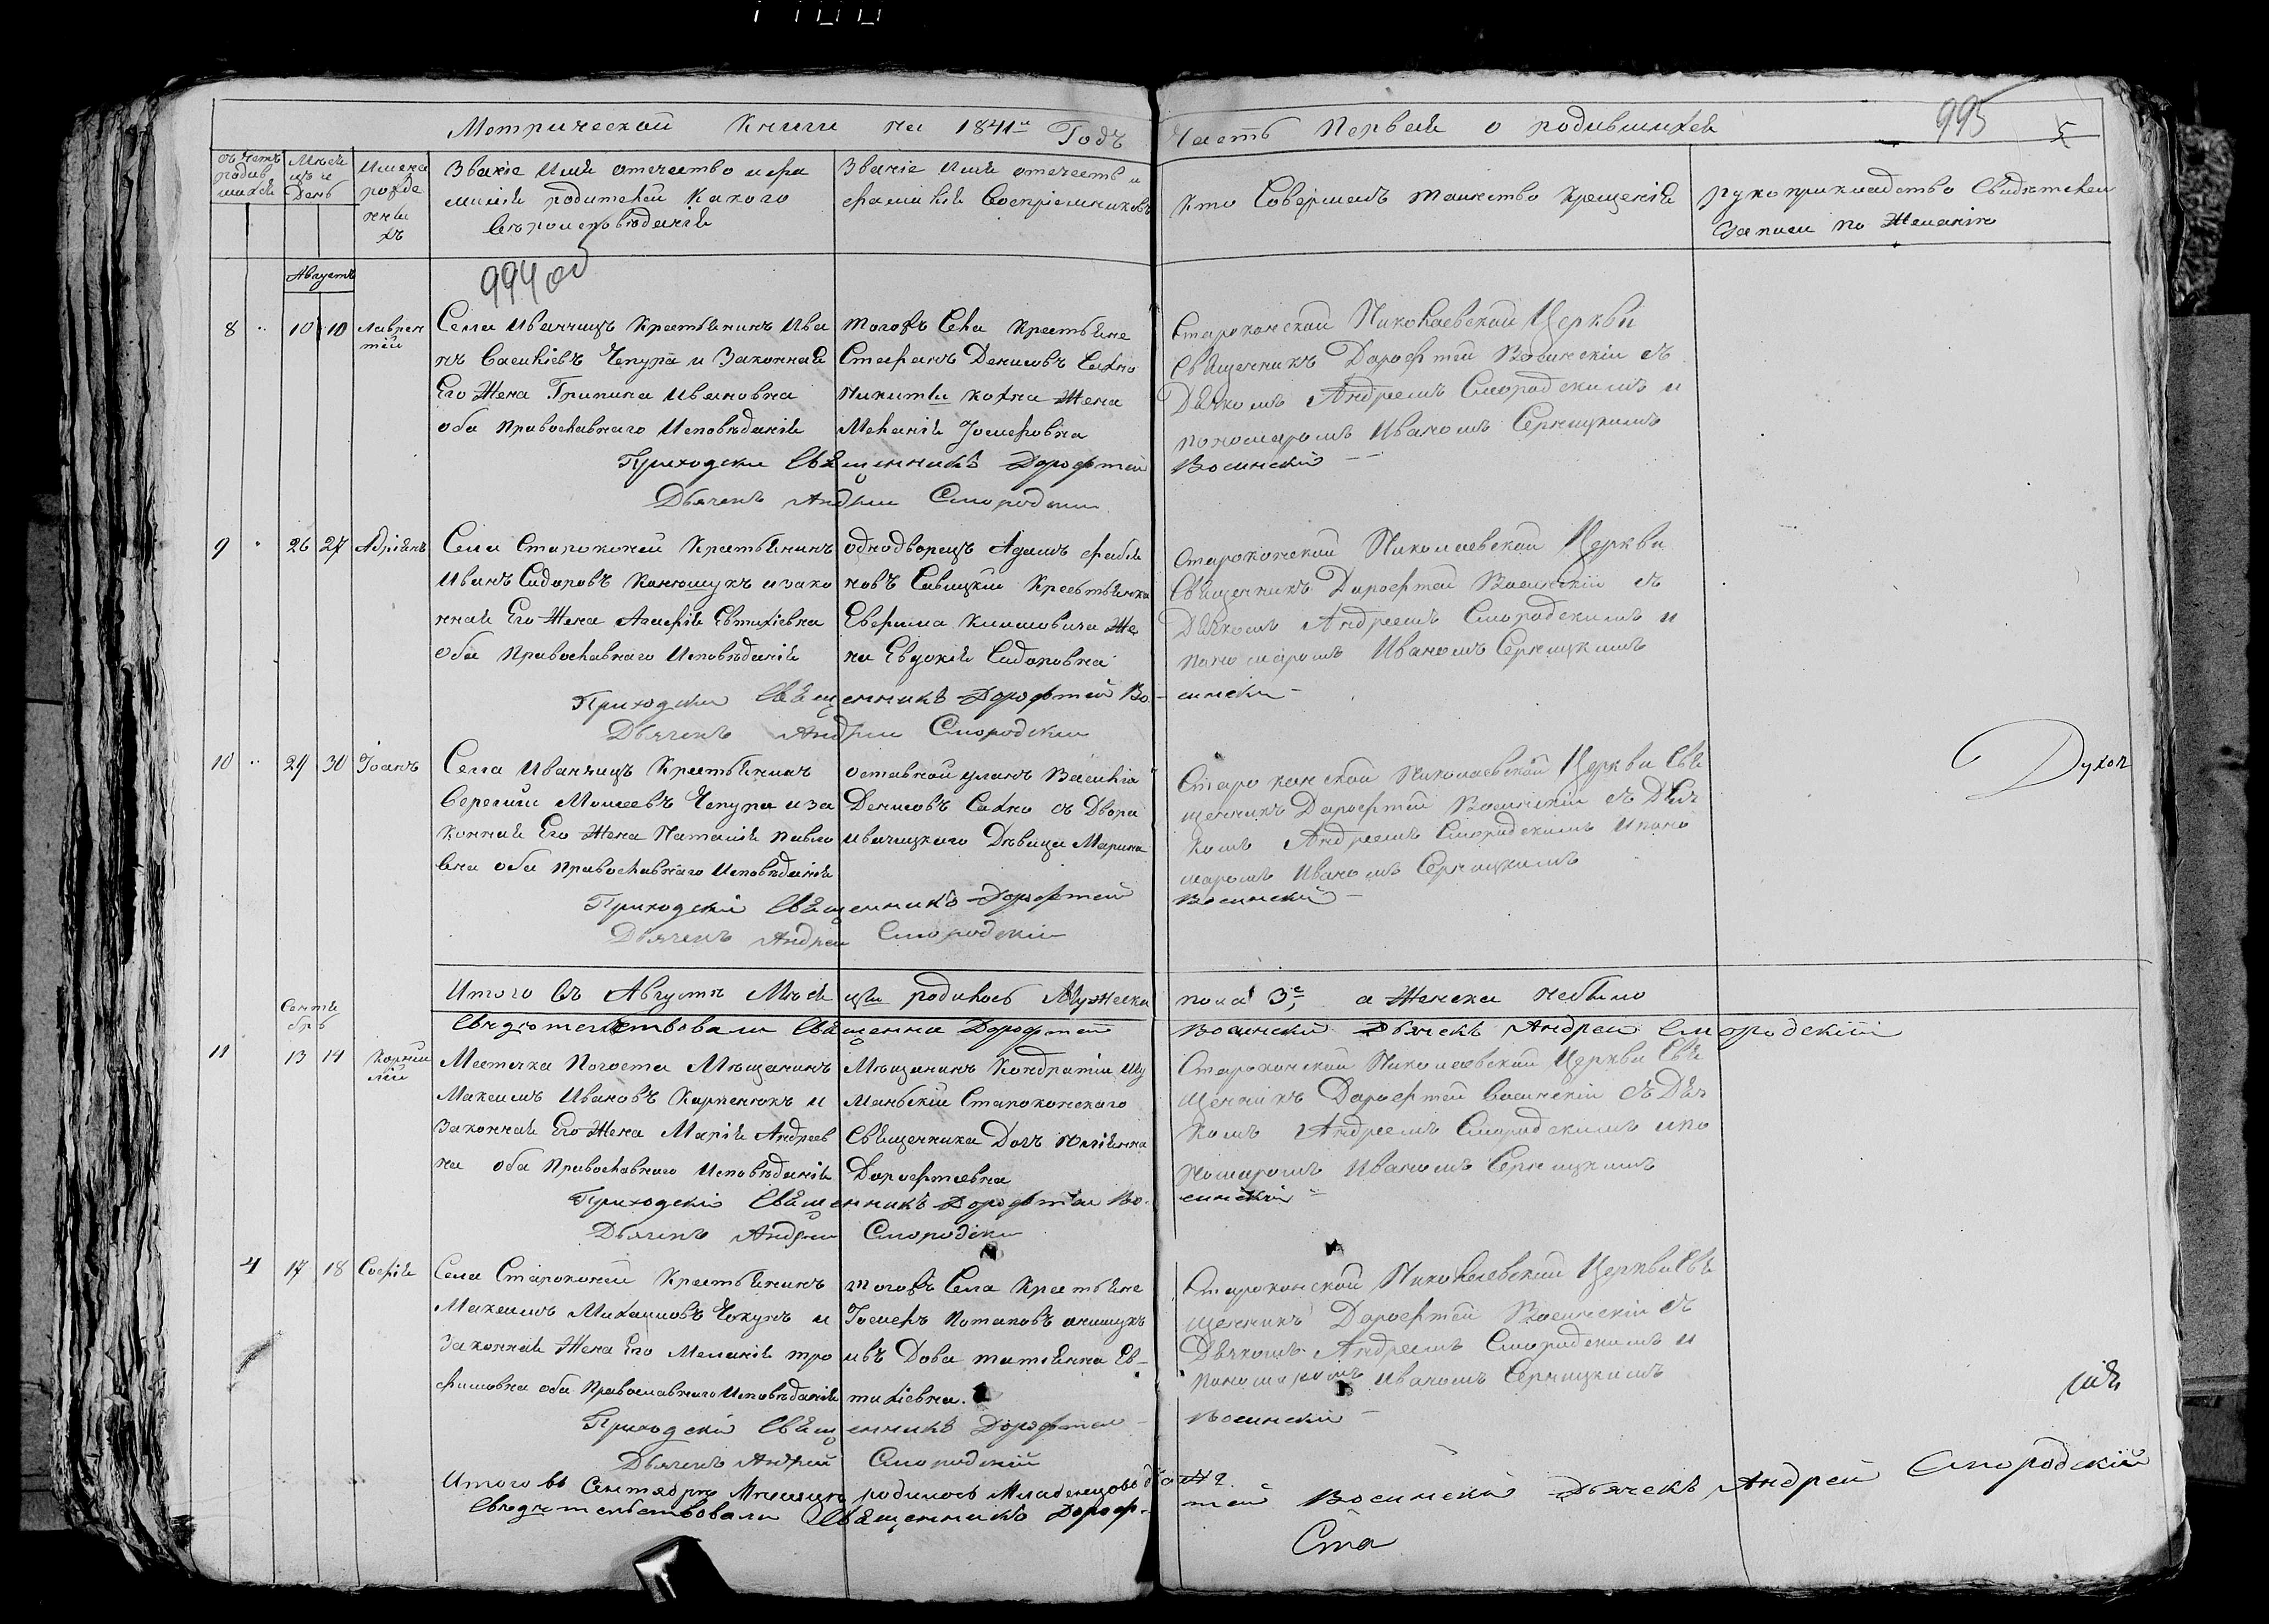 Метрической Книги на 1841й Годъ Часть Первая о родившихся
995
5
Счетъ родившихся
Мѣсяцъ и День
Имена рожденныхъ
Званіе Имя отечество и фамилія родителей Какого вѣроисповѣданія
Званіе Имя отечество и фамилія Воспріемниковъ
Кто Совершалъ таинство Крещенія
рукоприкладство Свидѣтелей
Записи по Желанію
Августъ
994 об
8 10 10 Лаврентій
Села Иванчицъ Крестьянинъ Ива
нъ Василіевъ Чепура и Законная
Его Жена Грипина Ивановна
оба Православнаго Исповѣданія
тогожъ Села Крестьяне
Стефанъ Денисовъ Сахно
Никиты Кохна Жена
Меланія Іосифовна
Староконской Николаевской Церкви
Священникъ Дарофтей Восинскій съ
Дячкомъ Андреемъ Смородскимъ и
пономаромъ Иваномъ Серницкимъ
Приходски Священникъ Дорофтей Восинский
Дьячекъ Андрей Смородски
9 26 27 Адріянъ
Села Староконей Крестьянинъ
Иванъ Сидоровъ Конюшукъ и зако
нная Его Жена Агафія Евтихіевна
Оба Православнаго Исповѣданія
однодворецъ Адамъ Фабія
новъ Савицкій Крестьянка
Евфима Климовича Же
на Евдокія Сидоровна
Староконской Николаевской Церкви
Священникъ Дарофтей Восинскій съ
Дячкомъ Андреемъ Смородскимъ и
пономаромъ Иваномъ Серницкимъ
Приходски Священникъ Дорофтей Во-
сински
Дьячекъ Андреи Смородскии
10 29 30 Іоанъ
Села Иванчицъ Крестьянинъ
Сергій Моисеевъ Чепура и за
конная Его Жена Наталія Павло
вна оба Православнаго Исповѣданія
оставной уланъ Василій
Денисовъ Сахно съ Двора
Ивачицкого Дѣвица Марина
Староконской Николаевской Церкви Свя
щенникъ Дарофтей Восинскій съ Дяч
комъ Андреемъ Смородскимъ и поно
маромъ Иваномъ Серницкимъ
Духов
Приходскій Священникъ Дорофтей Восинский
Дьячекъ Андреи Смородскій
Итого въ Августѣ Мѣсяцы родилось Мужеска пола 3е а Женска небыло
Свидѣтельствовали Священни Дорофтей Восински Дьячекъ Андреи Смородскій
Сентябрь
11 13 14 Корнилій
Местечка Погоста Мѣщанинъ
Максимъ Ивановъ Карпенюкъ и
Законная Его Жена Марія Андреев
на оба Православнаго Исповѣданія
Мѣщанинъ Кондратій Шу
маньскій Староконскаго
Священника Дочъ Юліянна
Дарофтеевна
Староконской Николаевской Церкви Свя
щенникъ Дарофтей Восинскій съ Дяч
комъ Андреемъ Смородскимъ и по
номаромъ Иваномъ Серницкимъ
Приходскій Священникъ Дорофтей Во-
синский
Дьячекъ Андрей Смородски
4 17 18 Софія
Села Староконей Крестьянинъ
Максимъ Михаиловъ и
Законная Жена Его Меланія Тро
фимовна оба Православнаго Исповѣданія
тогожъ Села Крестьяне
Іосифъ Потаповъ
Дова татіянна Ев-
тихіевна.
Староконской Николаевской Церкви Свя
щенникъ Дарофтей Восинскій съ
Дячкомъ Андреемъ Смородскимъ и
пономаромъ Иваномъ Серницкимъ
Приходскій Священникъ Дорофтеи Восинский
Дьячекъ Андрей Смородский
Итого въ Сентябрѣ Мѣсяцѣ родилось Младенцовъ 2
Свидѣтельствовали Священникъ Дороф-
тей Восински Дьячекъ Андрей Смородский
Ста